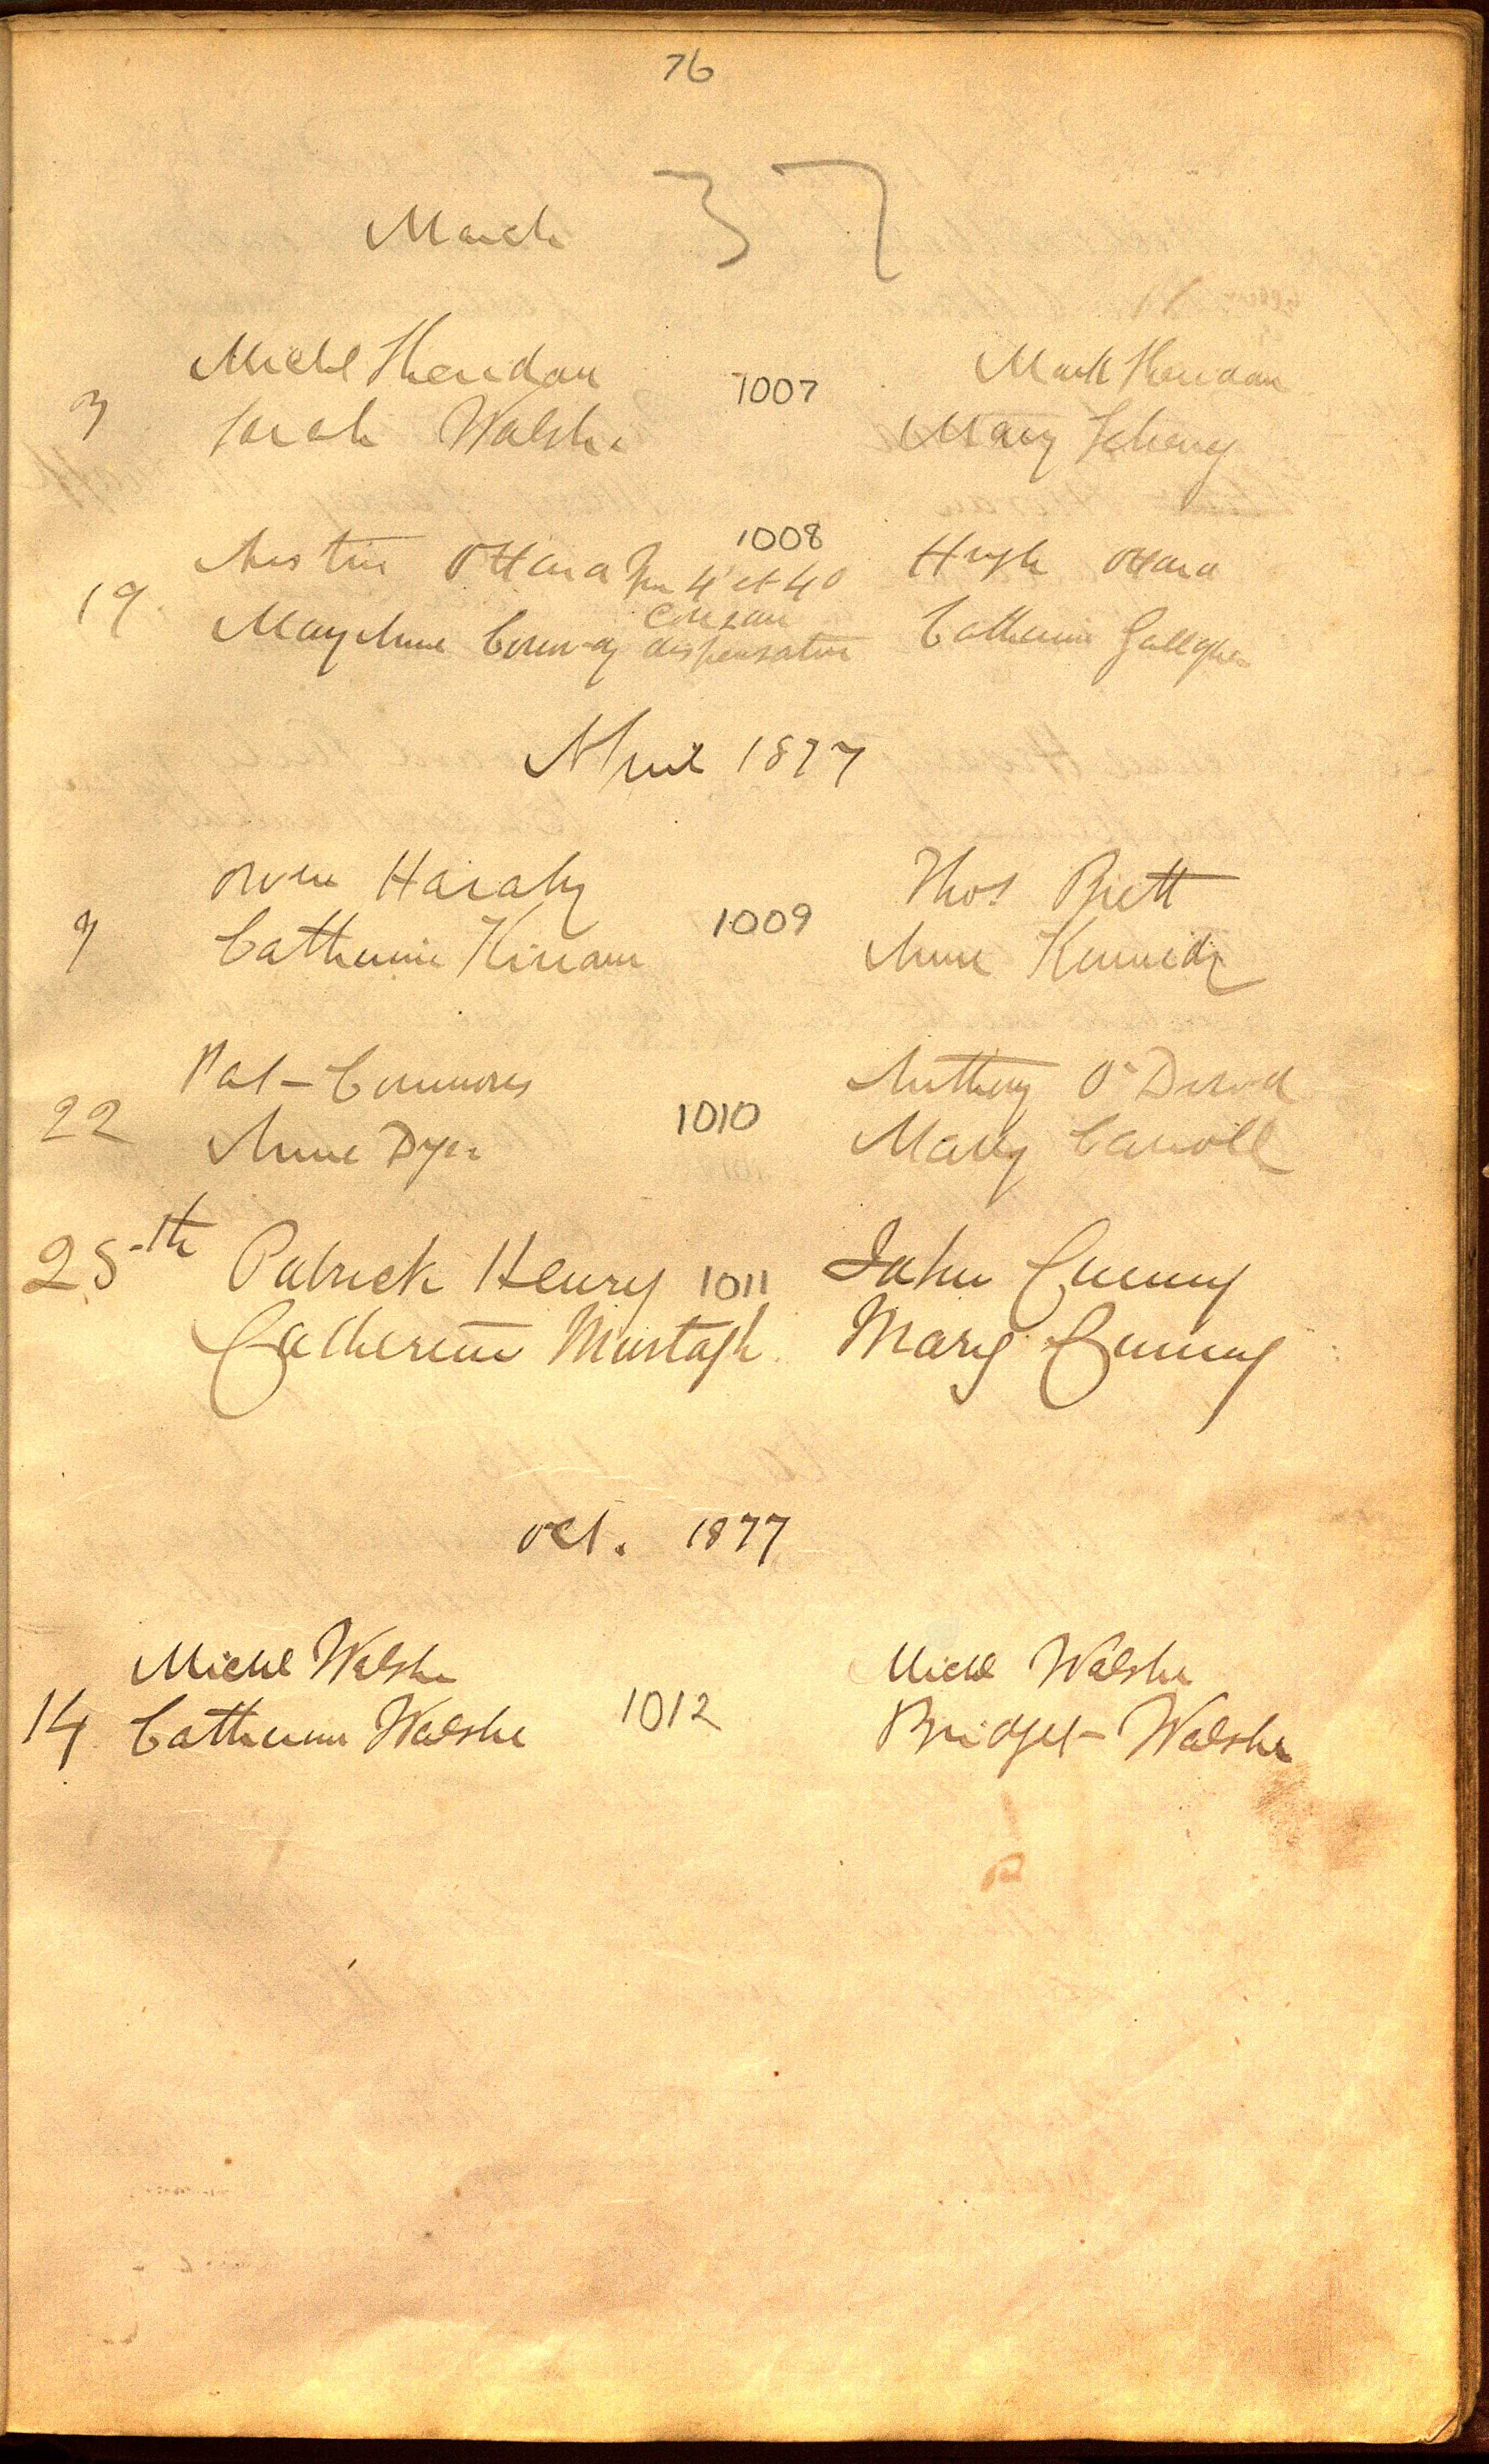 76
37
March
Michl Sheridan 1007 Mark Sheridan
3
Sarah Walshe Mary
1008
Austin O'Hara in 4 et 40 Hugh O'Hara
19
consan
Mary Anne Conway dispensation Catherine Gallagher
April 1877
Owen Haraty Thos Brett
9 1009
Catherine Kirrane Anne Kennedy
Pat Connores Anthony O'Dowd
22 1010
Anne Dyer Mary Carroll
25th Patrick Henry 1011 John Cunny
Catherine Murtagh Mary Cunny
Oct. 1877
Michl Walshe Michl Walshe
14 Catherine Walshe 1012 Bridget Walshe